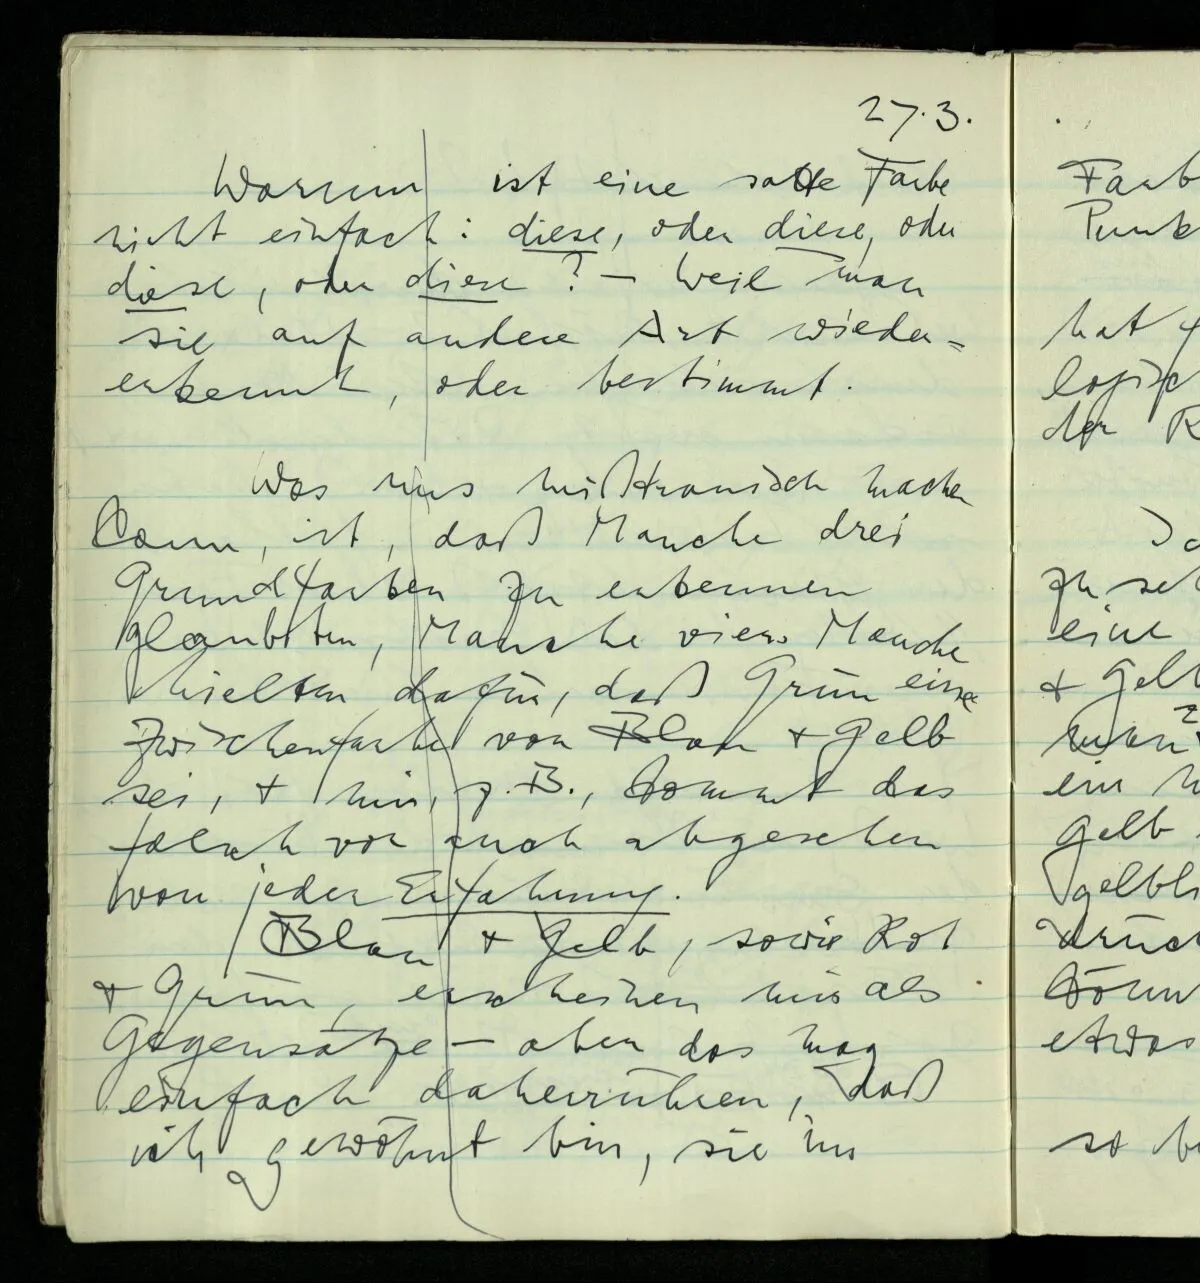 27.3.
Warum ist eine satte Farbe
nicht einfach: diese, oder diese, oder
diese, oder diese? – Weil man
sie auf andere Art wieder=
erkennt, oder bestimmt.
Was uns mißtrauisch machen
kann, ist, daß Manche drei
Grundfarben zu erkennen
glaubten, Manche vier. Manche
hielten dafür, daß Grün eine
Zwischenfarbe von Blau + Gelb
sei, + mir, z.B., kommt das
falsch vor auch abgesehen
von jeder Erfahrung.
Blau + Gelb, sowie Rot
+ Grün, erscheinen mir als
Gegensätze – aber das mag
einfach daherrühren, daß
ich gewöhnt bin, sie im
Farb
Punk
hat
logisch
der R
zu seh
eine
+ Gelb
man
ein
Gelb
gelbli
drück
könn
etwas
so